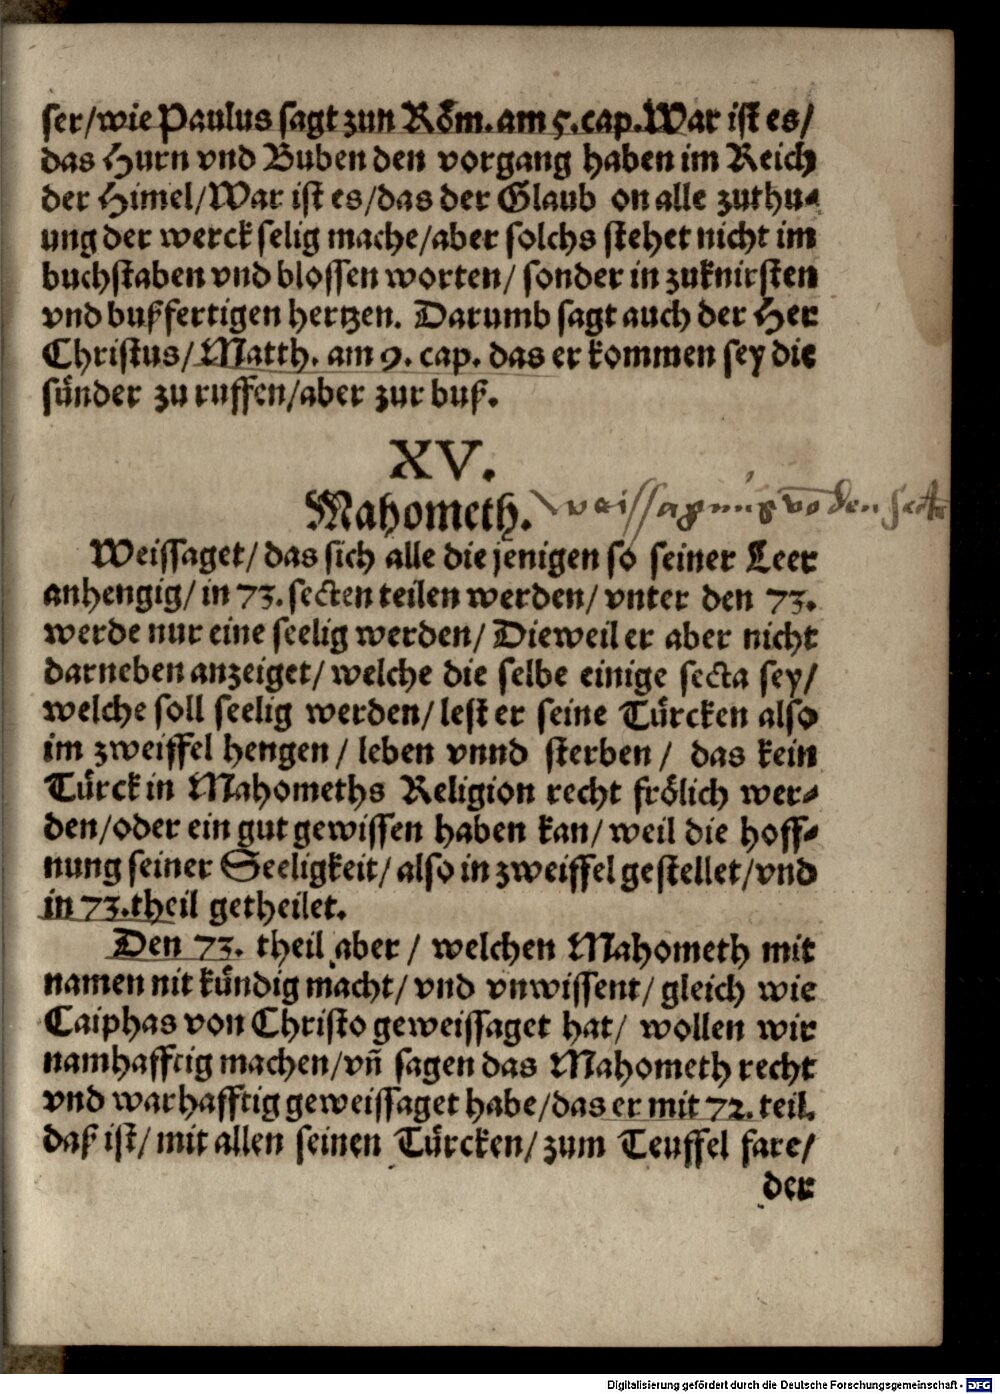 ser/wie Paulus sagt zun Röm. am 5. cap. War ist es/
das Hurn vnd Buben den vorgang haben im Reich
der Himel/War ist es/das der Glaub on alle zuthu-
ung der werck selig mache/aber solchs stehet nicht im
buchstaben vnd blossen worten/ sonder in zuknirsten
vnd bußfertigen hertzen. Darumb sagt auch der Her
Christus/Matth. am 9. cap. das er kommen sey die
sünder zu ruffen/aber zur buß.
XV.
Mahometh. weissagung vo den sect
Weissaget/das sich alle die jenigen so seiner Leer
anhengig/in 73. secten teilen werden/vnter den 73.
werde nur eine seelig werden/Dieweil er aber nicht
darneben anzeiget/welche die selbe einige secta sey/
welche soll seelig werden/lest er seine Türcken also
im zweiffel hengen/leben vnnd sterben/das kein
Türck in Mahomeths Religion recht frölich wer-
den/oder ein gut gewissen haben kan/weil die hoff-
nung seiner Seeligkeit/also in zweiffel gestellet/vnd
in 73.theil getheilet.
Den 73. theil aber/welchen Mahometh mit
namen nit kündig macht/vnd vnwissent/gleich wie
Caiphas von Christo geweissaget hat/wollen wir
namhafftig machen/vñ sagen das Mahometh recht
vnd warhafftig geweissaget habe/das er mit 72. teil.
daß ist/mit allen seinen Türcken/zum Teuffel fare/
der
Digitalisierung gefördert durch die Deutsche Forschungsgemeinschaft - DFG